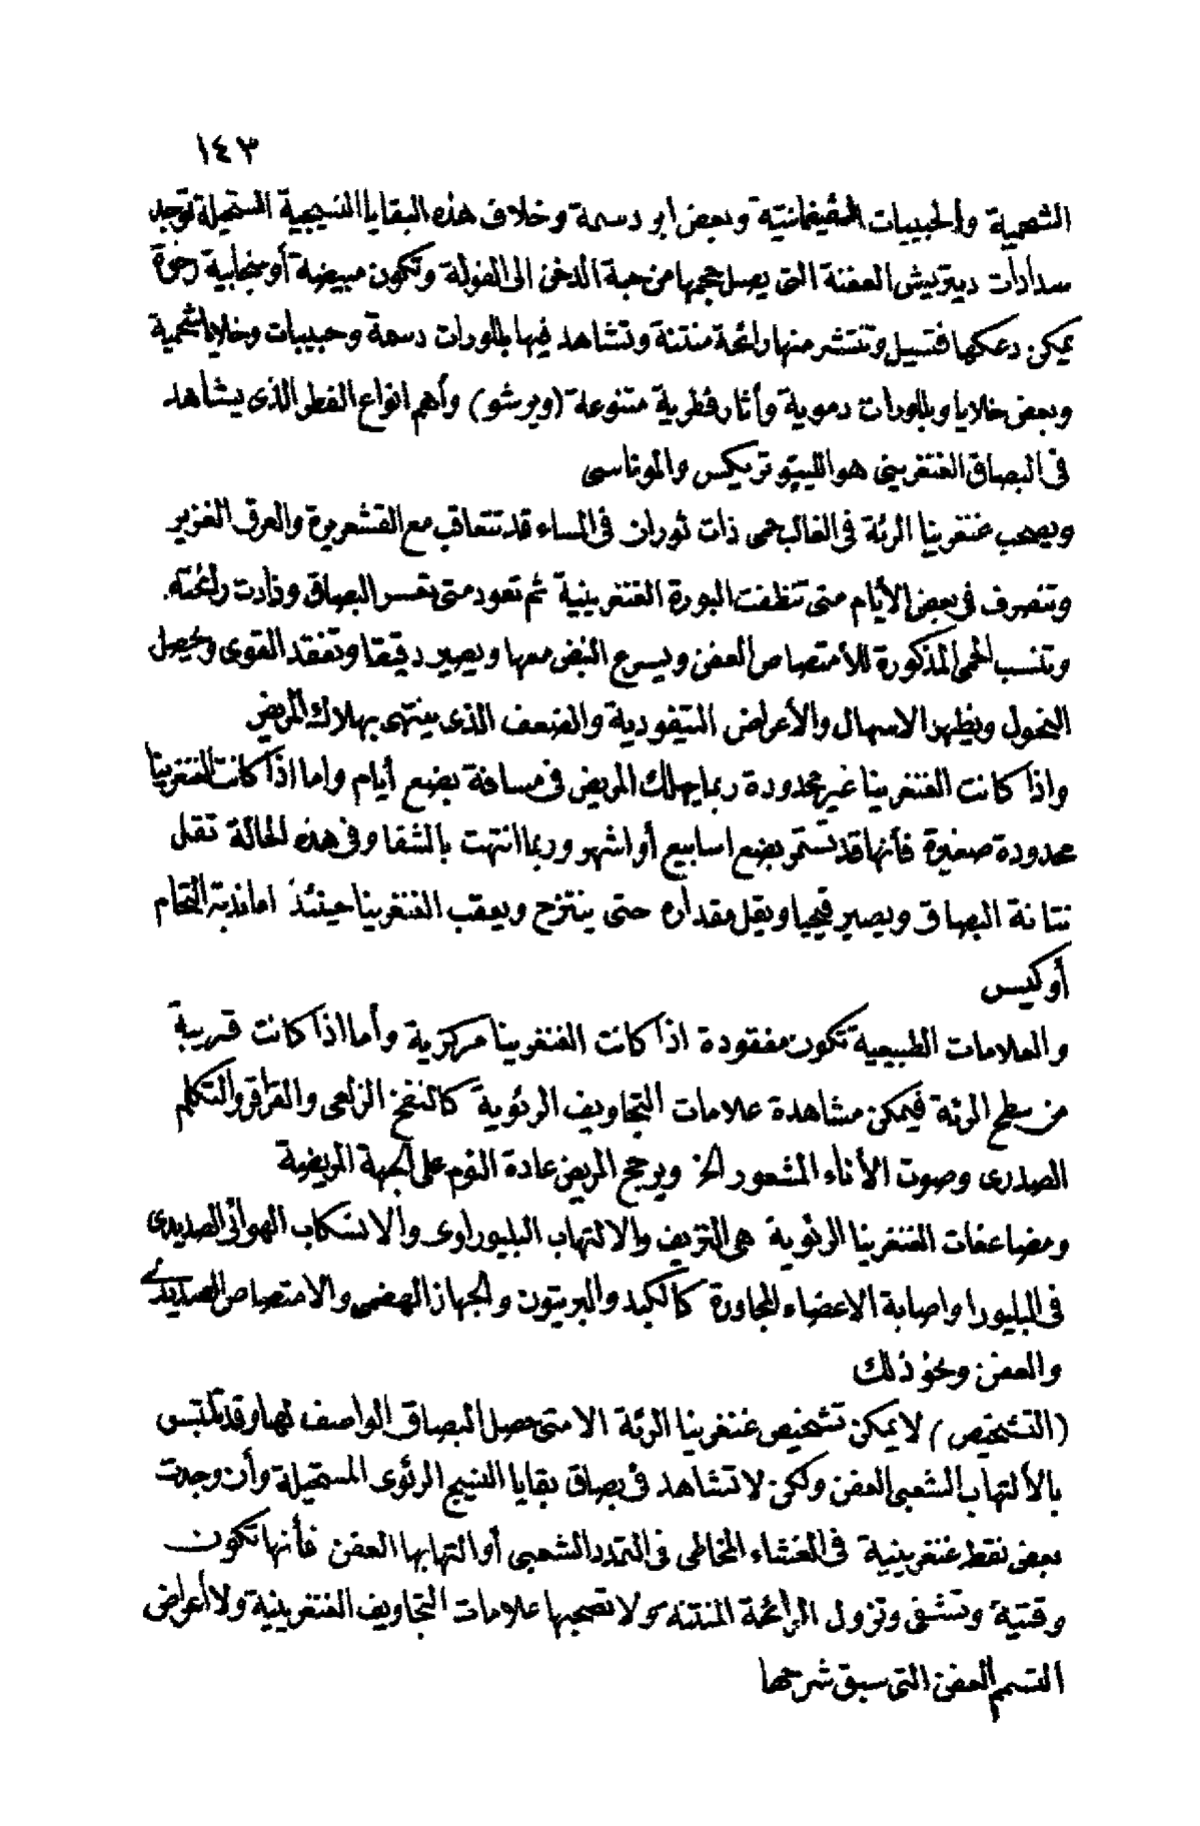 ١٤٣
الشحمية والحبيبات وبعض ابر دسمة وخلاف هذه البقايا النسيجية المستحيلة توجد
سدادات ديتريش العفنة التى يصل حجمها من حبة الدخن الى الفولة وتكون مبيضة أو سنجابية رخوة
يمكن دعكها فتسيل وتنتشر منها رائحة منتنة وتشاهد فيها بللورات دسمة وحبيبات وخلايا شحمية
وبعض خلايا وبللورات دموية وأثار فطرية متنوعة (ويرشو) وأهم انواع الفطر الذى يشاهد
فى البصاق الغنغرينى هو الليبتوتريكس والموناس
ويصحب غنغرينا الرئة فى الغالب حمى ذات ثوران فى المساء قد تتعاقب مع القشعريرة والعرق الغزير
وتنصرف فى بعض الأيام متى تنظفت البورة الغنغرينية ثم تعود متى تعسر البصاق وزادت رائحته
وتنسب الحمى المذكورة للأمتصاص العفن ويسرع النبض معها ويصير دقيقا وتفقد القوى ويحصل
النحول ويظهر الاسهال والأعراض التيفودية والضعف الذى ينتهى بهلاك المريض
واذا كانت الغنغرينا غير محدودة ربما يهلك المريض فى مسافة بضع أيام واما اذا كانت الغنغرينا
محدودة صغيرة فأنها قد تستمر بضع اسابيع أو اشهر وربما انتهت بالشفا وفى هذه الحالة تقل
نتانة البصاق ويصير قيحيا ويقل مقداره حتى ينتزح ويعقب الغنغرينا حينئذ اما ندبة التحام
أو كيس
والعلامات الطبيعية تكون مفقودة اذا كانت الغنغرينا مركزية وأما اذا كانت قريبة
من سطح الرئة فيمكن مشاهدة علامات التجاويف الرئوية كالنفخ الزلعى والقراقر والتكلم
الصدرى وصوت الأناء المشعور الخ ويرجح المريض عادة النوم على الجهة المريضة
ومضاعفات الغنغرينا الرئوية هى النزيف والالتهاب البليوراوى والانسكاب الهوائى الصديدى
فى البليورا واصابة الاعضاء المجاورة كالكبد والبريتون والجهاز الهضمى والامتصاص الصديدى
والعفن ونحو ذلك
(التشخيص) لا يمكن تشخيص غنغرينا الرئة الا متى حصل البصاق الواصف لها وقد تلتبس
بالألتهاب الشعبى العفن ولكن لا تشاهد فى بصاق بقايا النسيج الرئوى المستحيلة وأن وجدت
بعض نقط غنغرينية فى الغشاء المخاطى فى التمدد الشعبى أو التهابها العفن فأنها تكون
وقتية وتشفى وتزول الرائحة المنتنة ولا تصحبها علامات التجاويف الغنغرينية ولا أعراض
التسمم العفن التى سبق شرحها